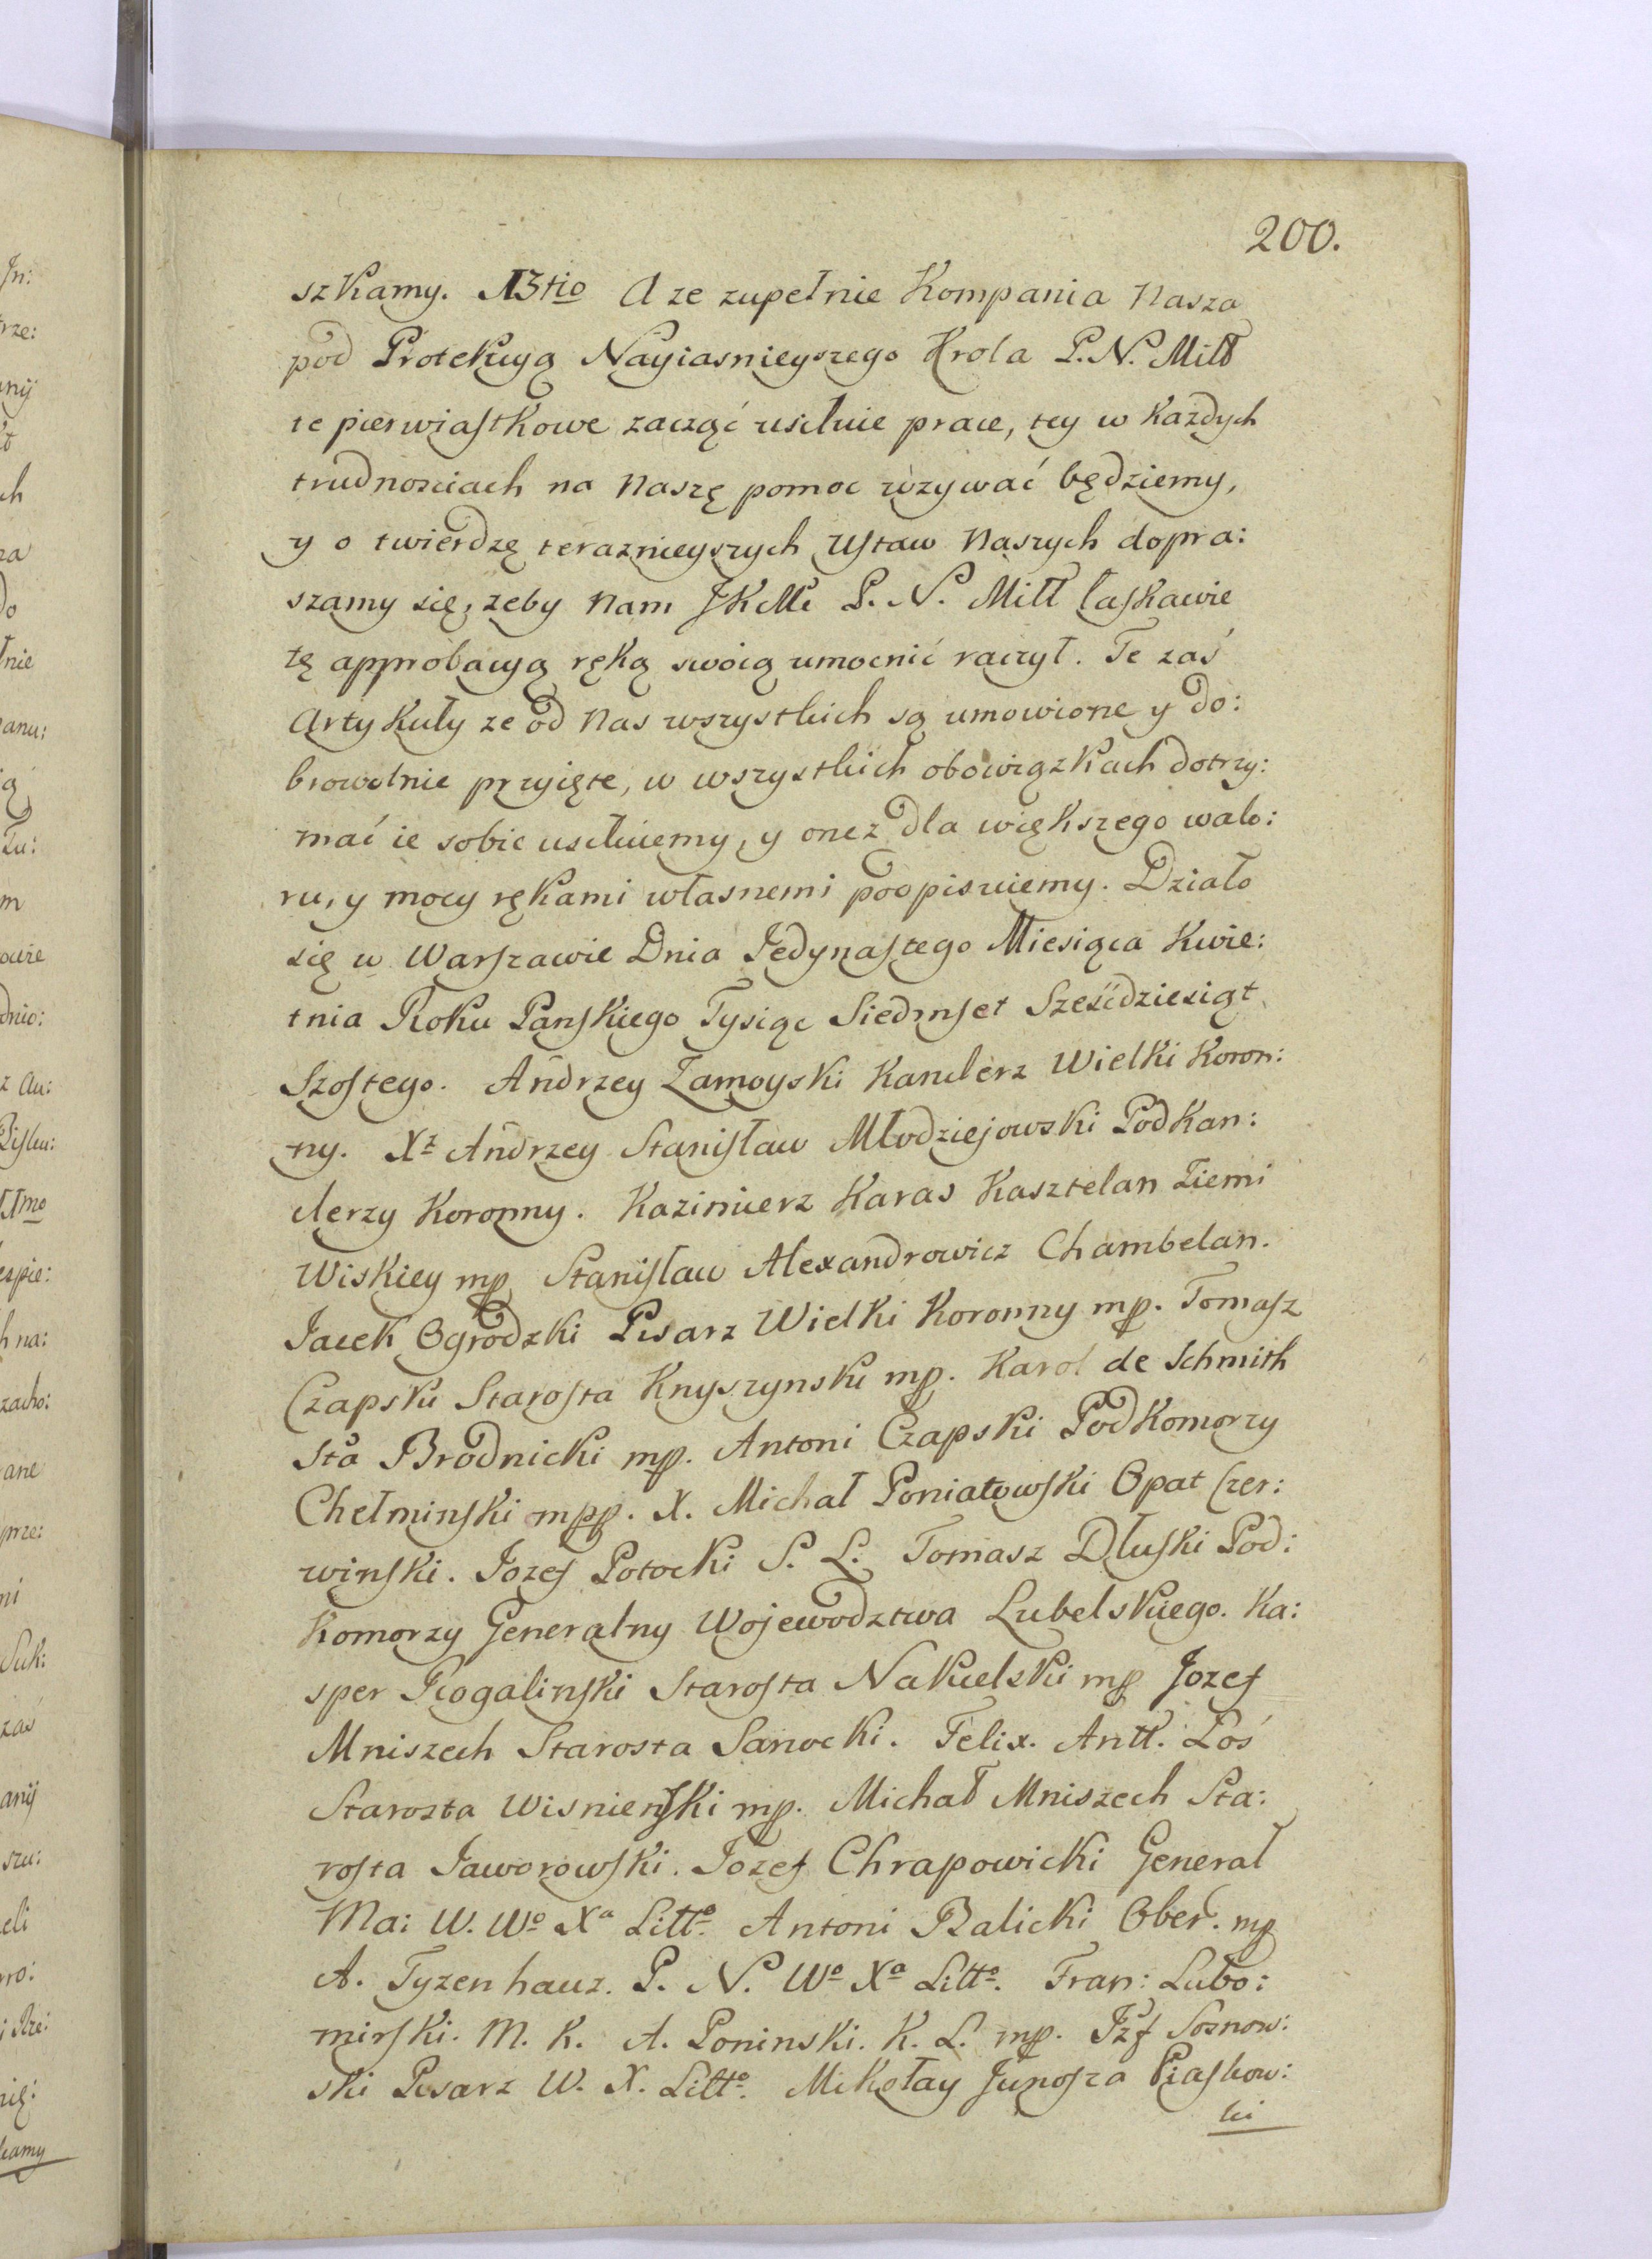 200.
szkamy. 13tio A ze zupełnie Kompania Nasza
pod Protekcyą Nayiasnieyszego Krola P. N. Miłł
te pierwiastkowe zacząć usiłuie prace, tey w każdych
trudnosciach na Naszę pomoc wzywać będziemy,
y o twierdzę teraznieyszych Ustaw Naszych dopra:
szamy się, zeby Nam JKMć P. N. Miłł łaskawie
tę approbacyą ręką swoią umocnić raczył. Te zaś
Artykuły ze od Nas wszystkich są umowione y do:
browolnie przyięte, w wszystkich obowiązkach dotrzy:
mać ie sobie usiłuiemy, y onez dla większego walo:
ru, y mocy rękami własnemi podpisuiemy. Działo
się w Warszawie Dnia Jedynastego Miesiąca Kwie:
tnia Roku Panskiego Tysiąc Siedmset Sześćdziesiąt
Szostego. Andrzey Zamoyski Kanclerz Wielki Koron:
ny. Xz Andrzey Stanisław Młodziejowski Podkan:
clerzy Koronny. Kazimierz Karas Kasztelan Ziemi
Wiskiey mp Stanisław Alexandrowicz Chambelan.
Jacek Ogrodzki Pisarz Wielki Koronny mp. Tomasz
Czapski Starosta Knyszynski mp. Karol de Schmith
Sta Brodnicki mp. Antoni Czapski Podkomorzy
Chełminski mpp. X. Michał Poniatowski Opat Czer:
winski. Jozef Potocki S. L. Tomasz Dłuski Pod:
komorzy Generalny Wojewodztwa Lubelskiego. Ka:
sper Rogalinski Starosta Nakielski mp Jozef
Mniszech Starosta Sanocki. Felix. Antt. Łoś
Starosta Wisnienski mp. Michał Mniszech Sta:
rosta Jaworowski. Jozef Chrapowicki Generał
Ma: W. Wo Xa Litto. Antoni Balicki Ober. mp
A. Tyzenhauz. P. N. Wo Xa Litto. Fran: Lubo:
mirski. M. K. A. Poninski. K. L. mp. Jzf Sosnow:
ski Pisarz W. X. Litto. Mikołay Junosza Piaskow:
ki